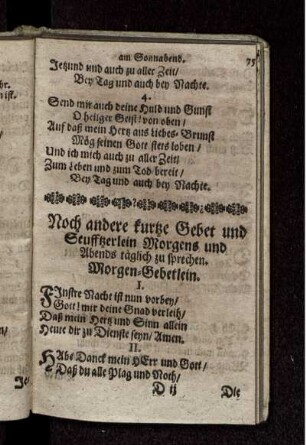 am Sonnabend. 75
Jetzund und auch zu aller Zeit/
Bey Tag und auch bey Nachte.
4.
Send mir auch deine Huld und Gunst
O heiliger Geist! von oben/
Auf daß mein Hertz aus liebes-Brunst
Mög seinen Gott stets loben/
Und ich mich auch zu aller Zeit/
Zum Leben und zum Tod bereit/
Bey Tag und auch bey Nachte.
Noch andere kurtze Gebet und
Seufftzerlein Morgens und
Abends täglich zu sprechen.
Morgen-Gebetlein.
I.
FInstre Nacht ist nun vorbey/
Gott! mir deine Gnad verleih/
Daß mein Hertz und Sinn allein
Heute dir zu Dienste seyn/ Amen.
II.
HAbe Danck mein HErr und Gott/
Daß du alle Plag und Noth/
D ij Die